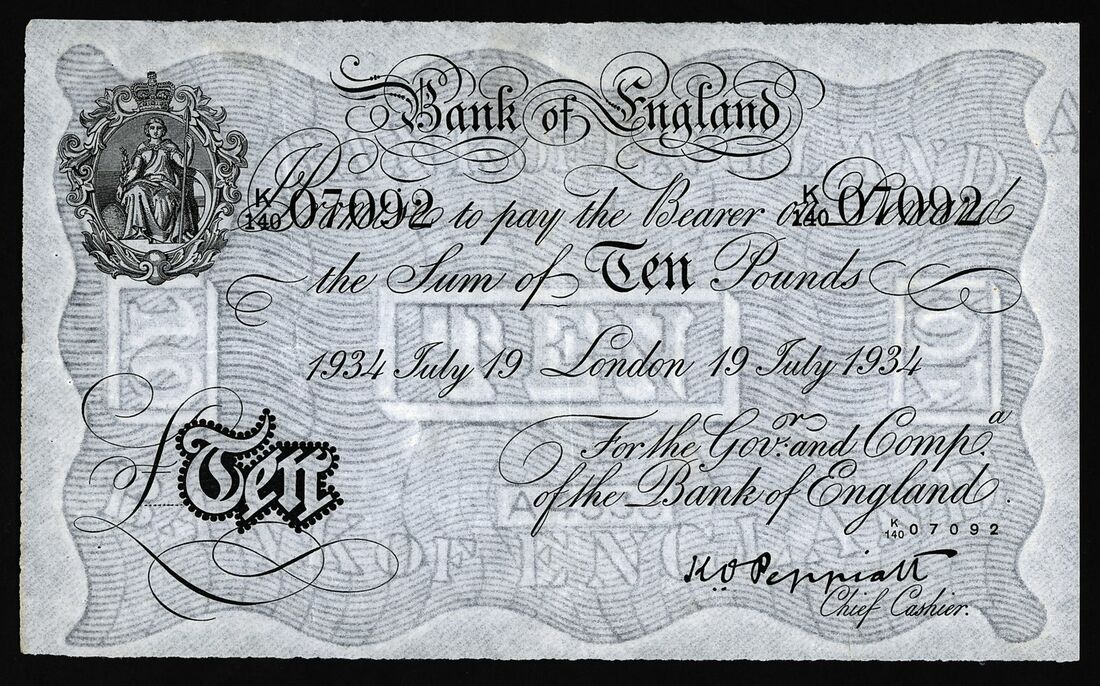 Bank of England
K/140 07092 K/140 07092
I Promise to pay the Bearer on Demand
the Sum of Ten Pounds
1934 July 19 London 19 July 1934
For the Gov.r and Comp.a
of the Bank of England.
£ Ten
K/140 07092
K O Peppiatt
Chief Cashier.
TEN
BANK OF ENGLAND